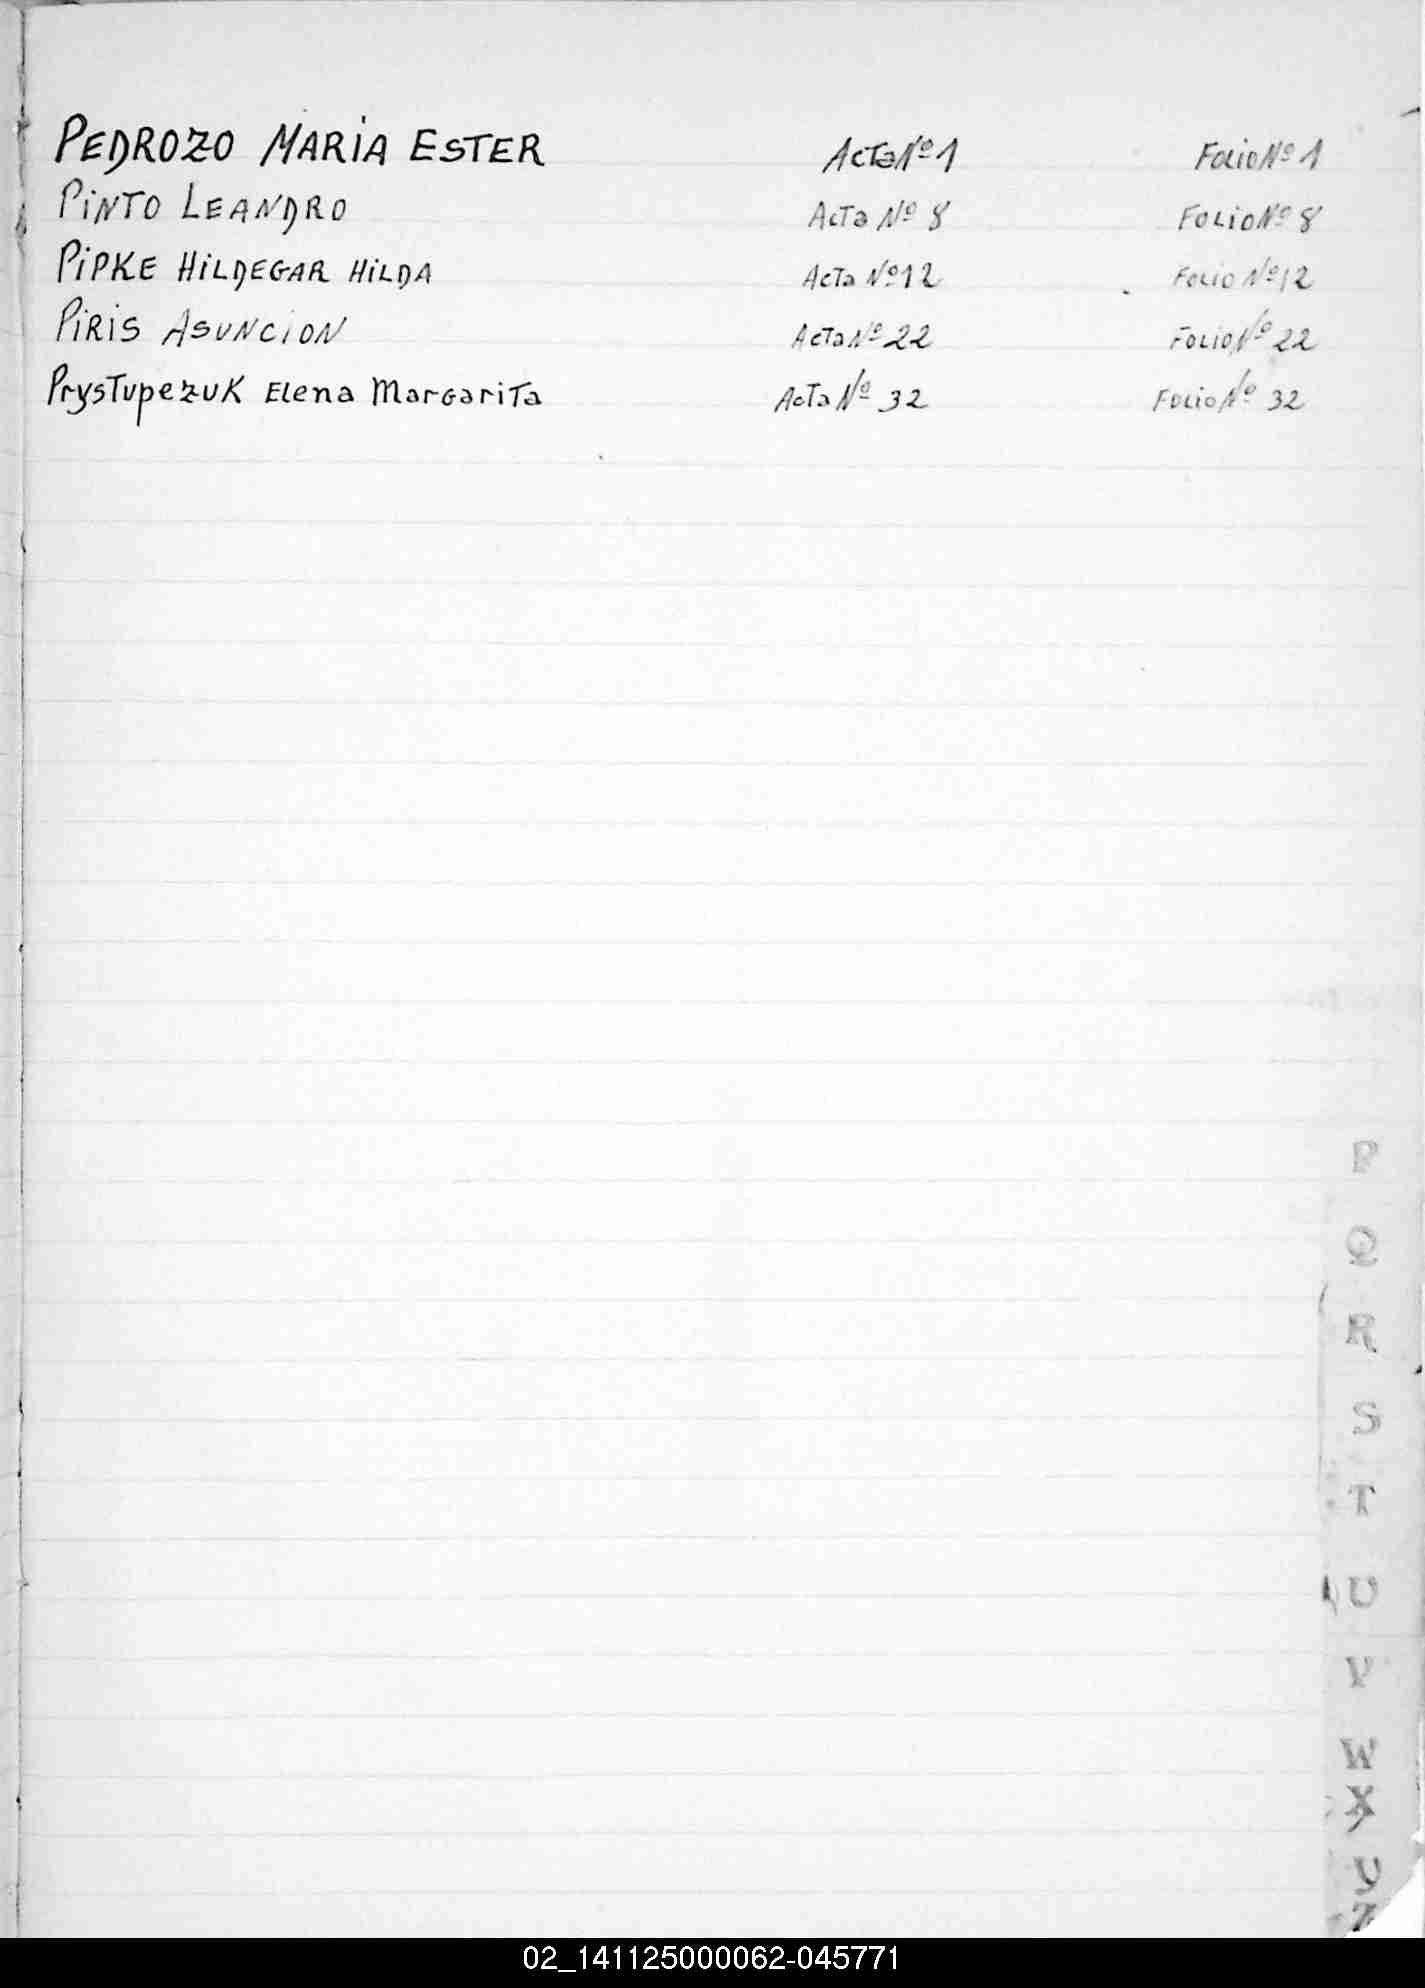 PEDROZO MARIA ESTER Acta Nº 1 Folio Nº 1
PINTO LEANDRO Acta Nº 8 Folio Nº 8
PIPKE HILDEGAR HILDA Acta Nº 12 Folio Nº 12
PIRIS ASUNCION Acta Nº 22 Folio Nº 22
PrysTupezuK Elena MargariTa Acta Nº 32 Folio Nº 32
P
Q
R
S
T
U
V
W
X
Y
Z
02_141125000062-045771